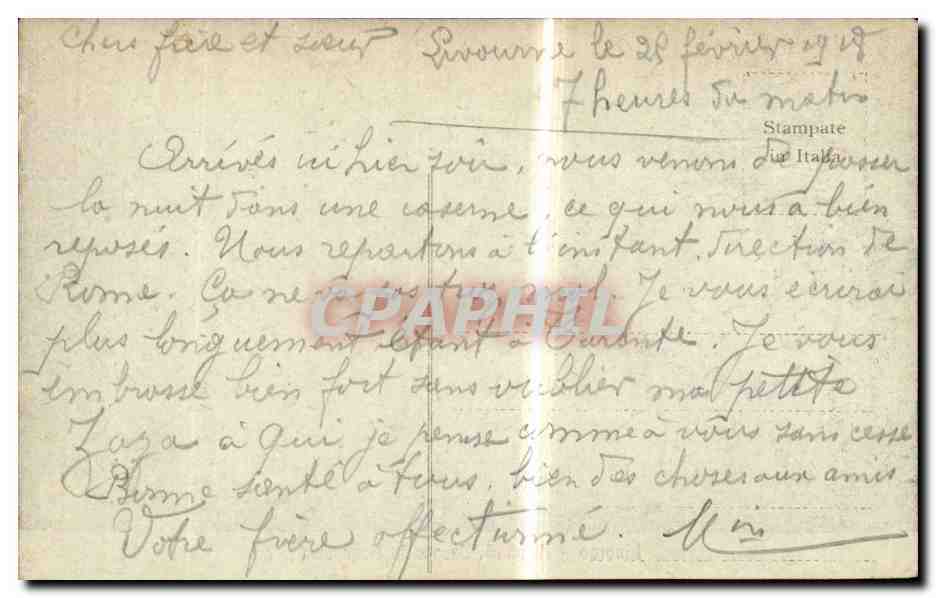 Chers frère et sœur Livourne le 25 février 1918
7 heures du matin
Stampate
in Italia
Arrivés ici hier soir, nous venons de passer
la nuit dans une caserne, ce qui nous a bien
reposés. Nous repartons à l'instant direction de
Rome. Ça ne va pas trop mal. Je vous écrirai
CPAPHIL
plus longuement étant à Tarente. Je vous
embrasse bien fort sans oublier ma petite
Zaza à qui je pense comme à vous sans cesse
Bonne santé à tous, bien des choses aux amis.
Votre frère affectionné.